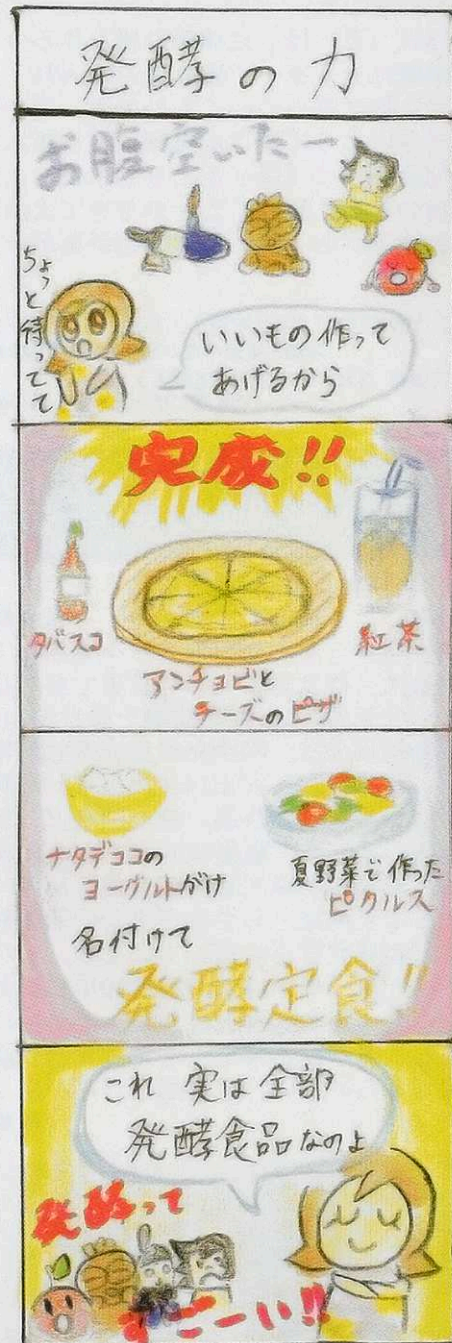 発酵の力
お腹空いたー
ちょっと待ってて
いいもの作って
あげるから
完成!!
タバスコ
紅茶
アンチョビと
チーズのピザ
ナタデココの
ヨーグルトがけ
夏野菜で作った
ピクルス
名付けて
発酵定食!!
これ 実は全部
発酵食品なのよ
発酵って
すごーい!!